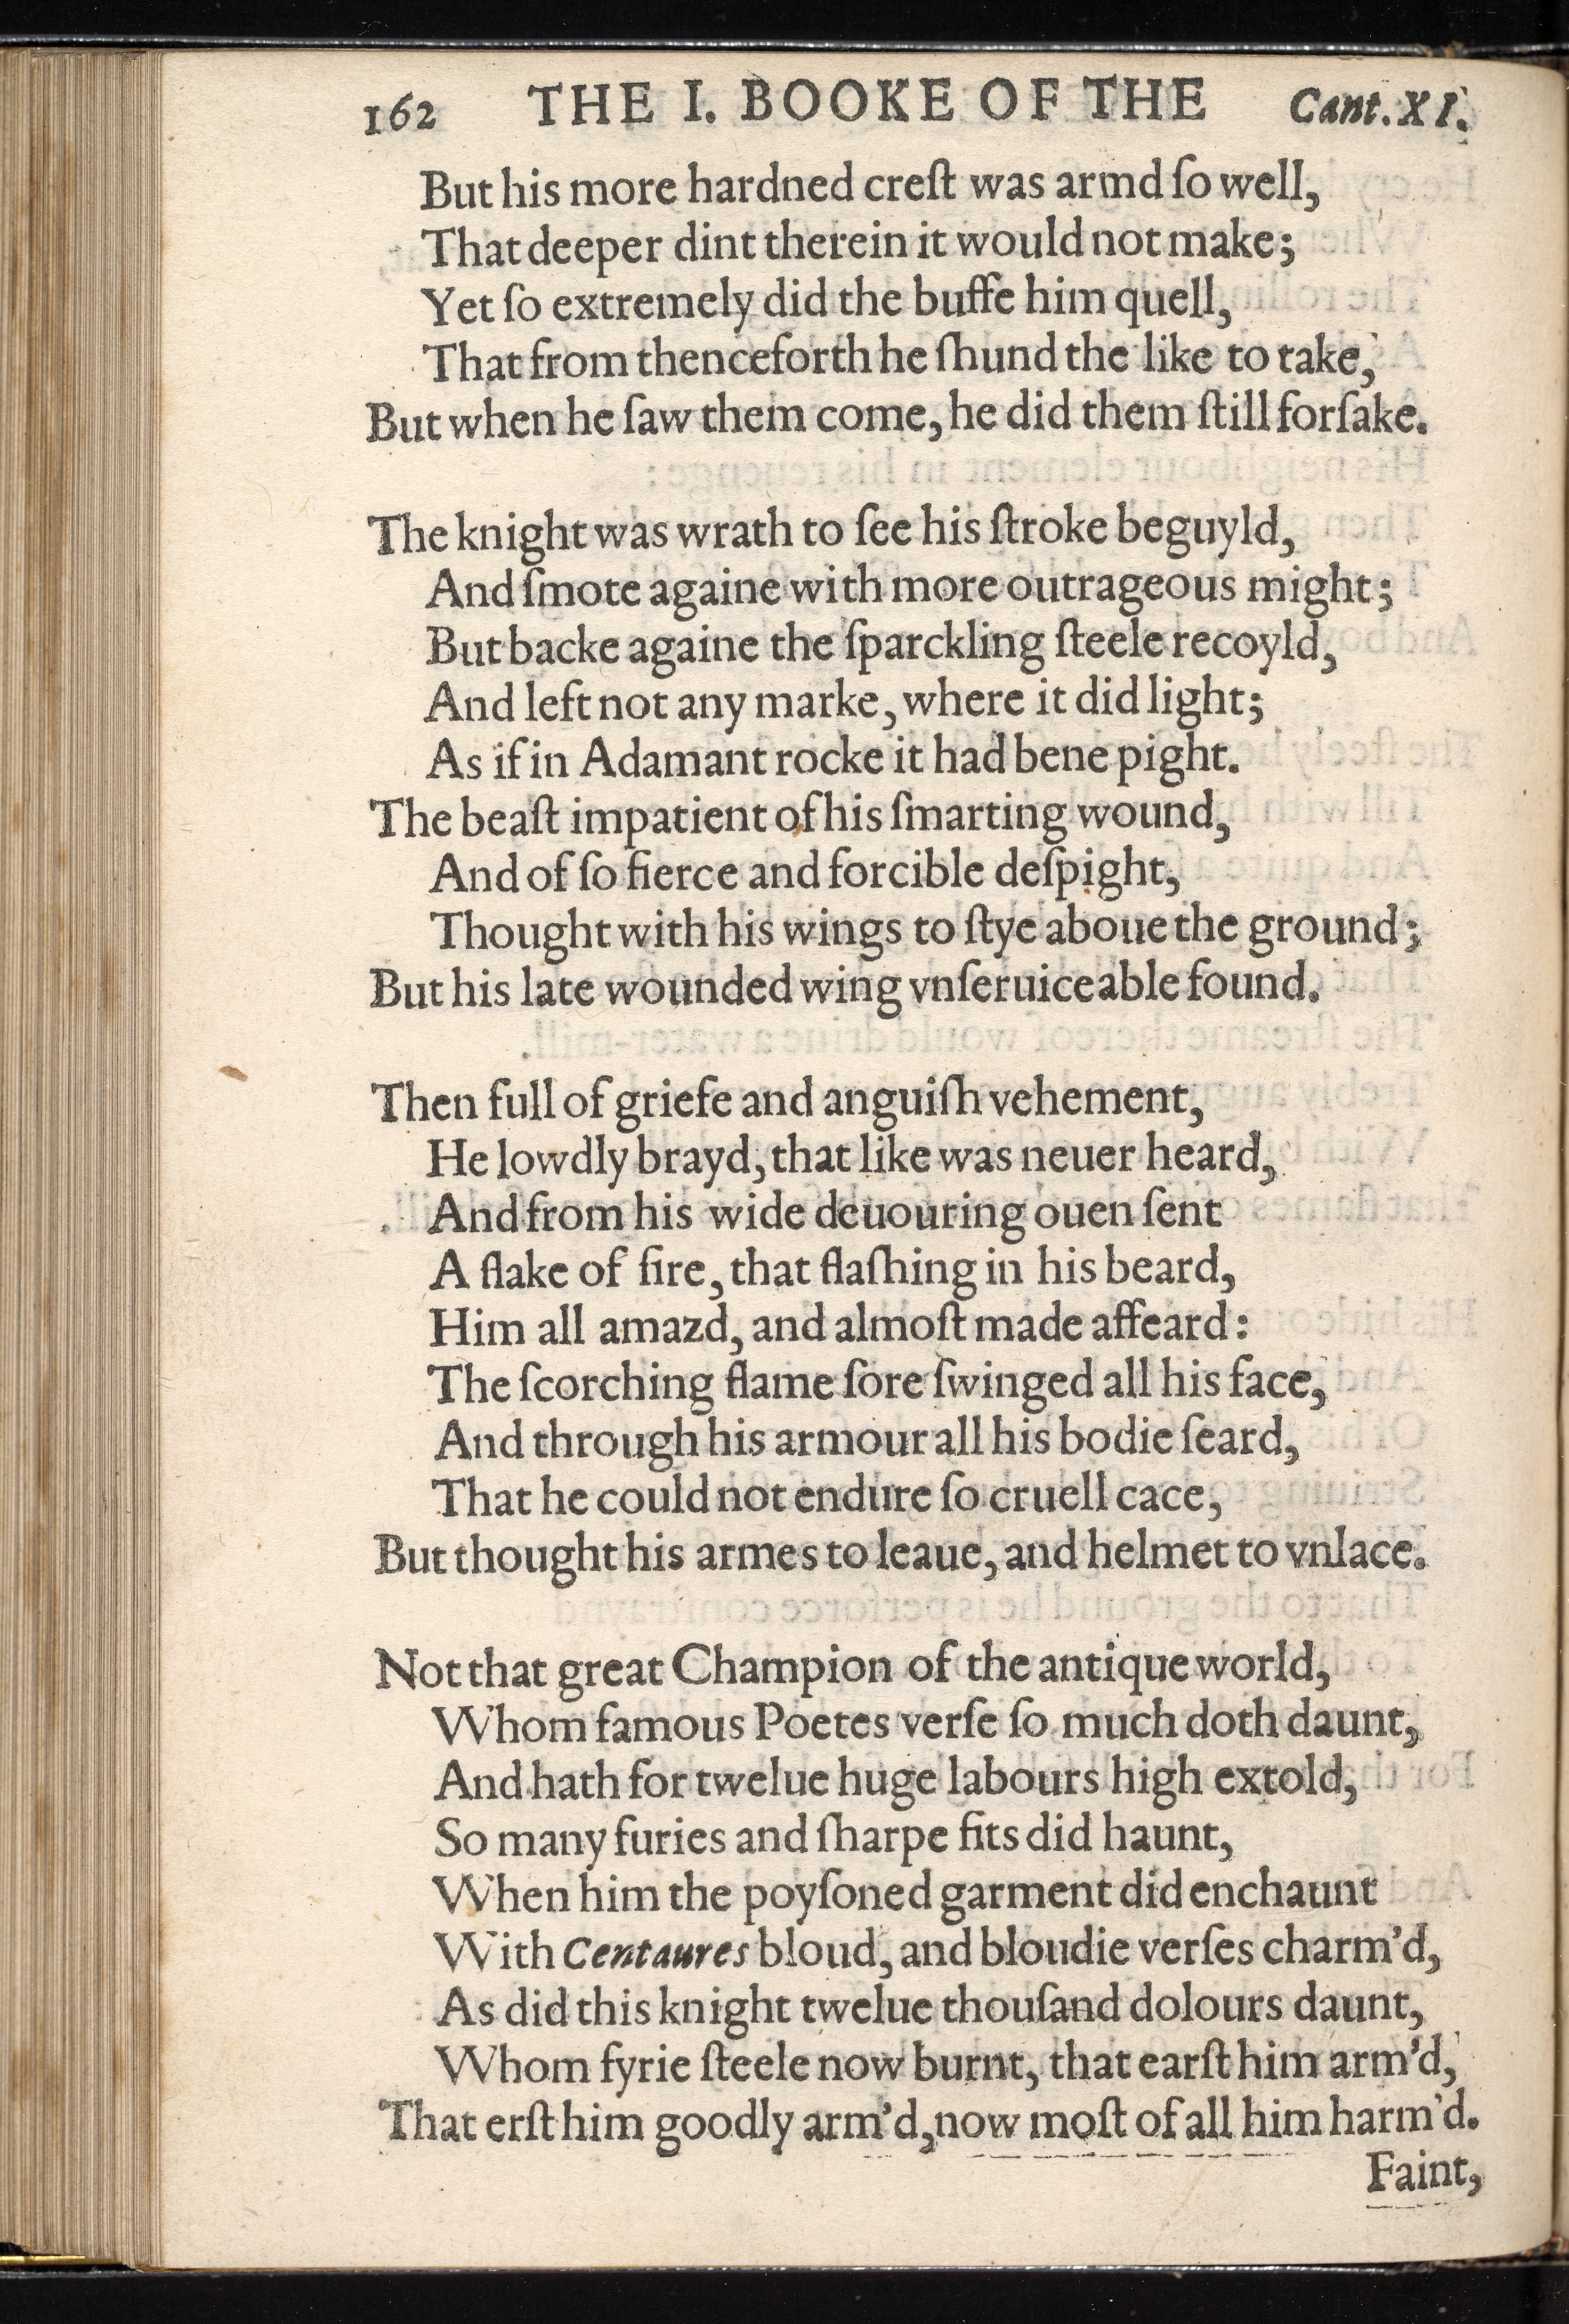 162 THE I. BOOKE OF THE Cant. XI.
But his more hardned creſt was armd ſo well,
That deeper dint therein it would not make;
Yet ſo extremely did the buffe him quell,
That from thenceforth he ſhund the like to take,
But when he ſaw them come, he did them ſtill forſake.
The knight was wrath to ſee his ſtroke beguyld,
And ſmote againe with more outrageous might;
But backe againe the ſparckling ſteele recoyld,
And left not any marke, where it did light;
As if in Adamant rocke it had bene pight.
The beaſt impatient of his ſmarting wound,
And of ſo fierce and forcible deſpight,
Thought with his wings to ſtye aboue the ground;
But his late wounded wing vnſeruiceable found.
Then full of griefe and anguiſh vehement,
He lowdly brayd, that like was neuer heard,
And from his wide deuouring ouen ſent
A flake of fire, that flaſhing in his beard,
Him all amazd, and almoſt made affeard:
The ſcorching flame ſore ſwinged all his face,
And through his armour all his bodie ſeard,
That he could not endure ſo cruell cace,
But thought his armes to leaue, and helmet to vnlace.
Not that great Champion of the antique world,
Whom famous Poetes verſe ſo much doth daunt,
And hath for twelue huge labours high extold,
So many furies and ſharpe fits did haunt,
When him the poyſoned garment did enchaunt
With Centaures bloud, and bloudie verſes charm'd,
As did this knight twelue thouſand dolours daunt,
Whom fyrie ſteele now burnt, that earſt him arm'd,
That erſt him goodly arm'd, now moſt of all him harm'd.
Faint,